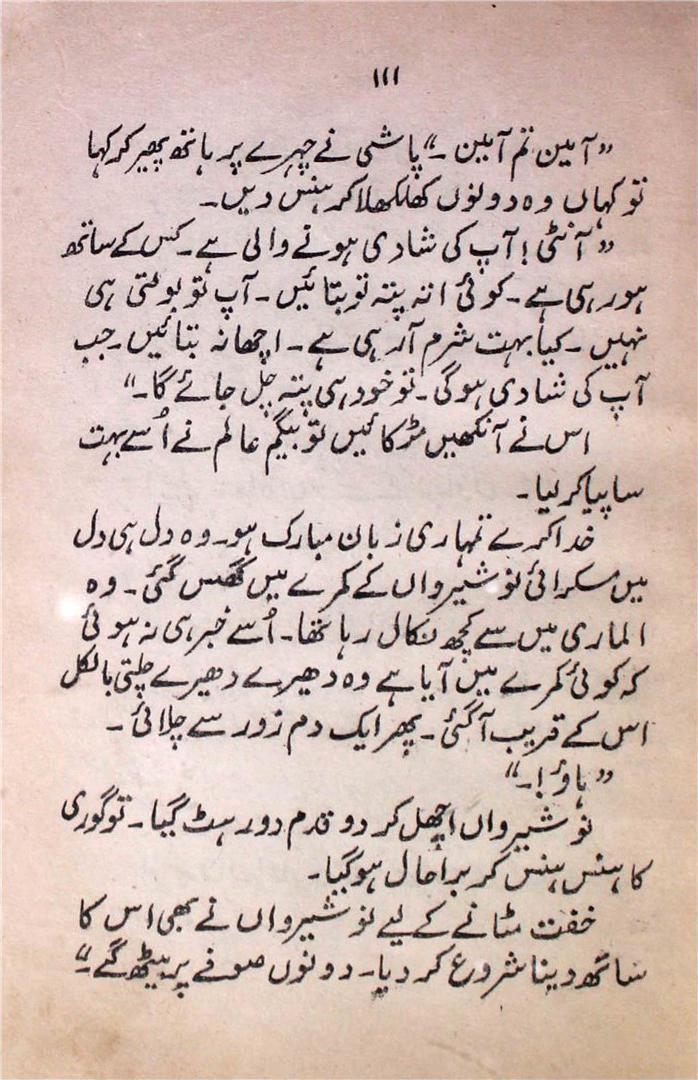 ۱۱۱
”آمین تم آمین۔“ پاشمی نے چہرے پر ہاتھ پھیر کر کہا
تو کہاں وہ دونوں کھلکھلا کر ہنس دیں۔
”آنٹی! آپ کی شادی ہونے والی ہے۔ کس کے ساتھ
ہو رہی ہے۔ کوئی اتہ پتہ تو بتائیں۔ آپ تو بولتی ہی
نہیں۔ کیا بہت شرم آ رہی ہے۔ اچھا نہ بتائیں۔ جب
آپ کی شادی ہو گی۔ تو خود ہی پتہ چل جائے گا۔“
اس نے آنکھیں مٹکائیں تو بیگم عالم نے اُسے بہت
سا پیار کر لیا۔
خدا کرے تمہاری زبان مبارک ہو۔ وہ دل ہی دل
میں مسکرائی نوشیرواں کے کمرے میں گھس گئی۔ وہ
الماری میں سے کچھ نکال رہا تھا۔ اُسے خبر ہی نہ ہوئی
کہ کوئی کمرے میں آیا ہے وہ دھیرے دھیرے چلتی بالکل
اس کے قریب آ گئی۔ پھر ایک دم زور سے چلائی۔
”ہاؤ!۔“
نوشیرواں اچھل کر دو قدم دور ہٹ گیا۔ تو گوری
کا ہنس ہنس کر برا حال ہو گیا۔
خفت مٹانے کے لیے نوشیرواں نے بھی اس کا
ساتھ دینا شروع کر دیا۔ دونوں صوفے پر بیٹھ گئے۔“